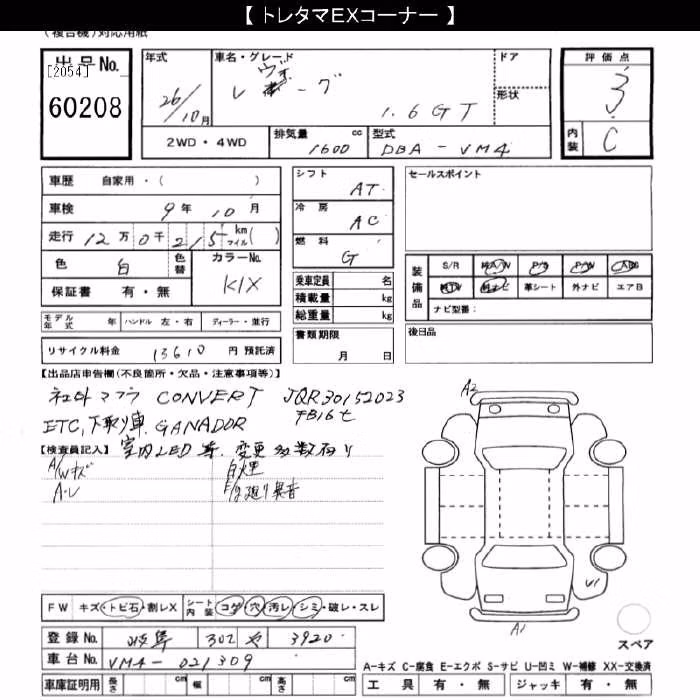 【 トレタマEXコーナー 】
(複合機)対応用紙
出品No. [2054] 60208
年式 26/10月
車名・グレード レヴォーグ 1.6GT
ドア
形状
評価点 3
内装 C
2WD・4WD 排気量 1600 cc 型式 DBA-VM4
車歴 自家用・( )
車検 9年10月
走行 12万0千215 km マイル( )
色 白 色替 カラーNo. K1X
保証書 有・無
モデル年式 年 ハンドル 左・右 ディーラー・並行
リサイクル料金 13610 円 預託済
シフト AT
冷房 AC
燃料 G
乗車定員 名
積載量 kg
総重量 kg
書類期限 月 日
セールスポイント
装備品 S/R P/S P/W ABS
革シート 外ナビ エアB
ナビ型番:
後日品
【出品店申告欄(不良箇所・欠品・注意事項等)】
社外マフラ CONVERT JQR30152023
ETC,下取り車.GANADOR FB16七
【検査員記入】 室内LED等.変更多数有り
A/Wキズ
A・U
F/足廻り異音
FW キズ・トビ石・割レX シート内装 コゲ・穴・汚レ・シミ・破レ・スレ
登録No. 岐阜 302 や 3920
車台No. VM4-021309
車庫証明用 長さ cm 幅 cm 高さ cm
A2
U1
A1
スペア
A-キズ C-腐食 E-エクボ S-サビ U-凹ミ W-補修 XX-交換済
工具 有・無 ジャッキ 有・無